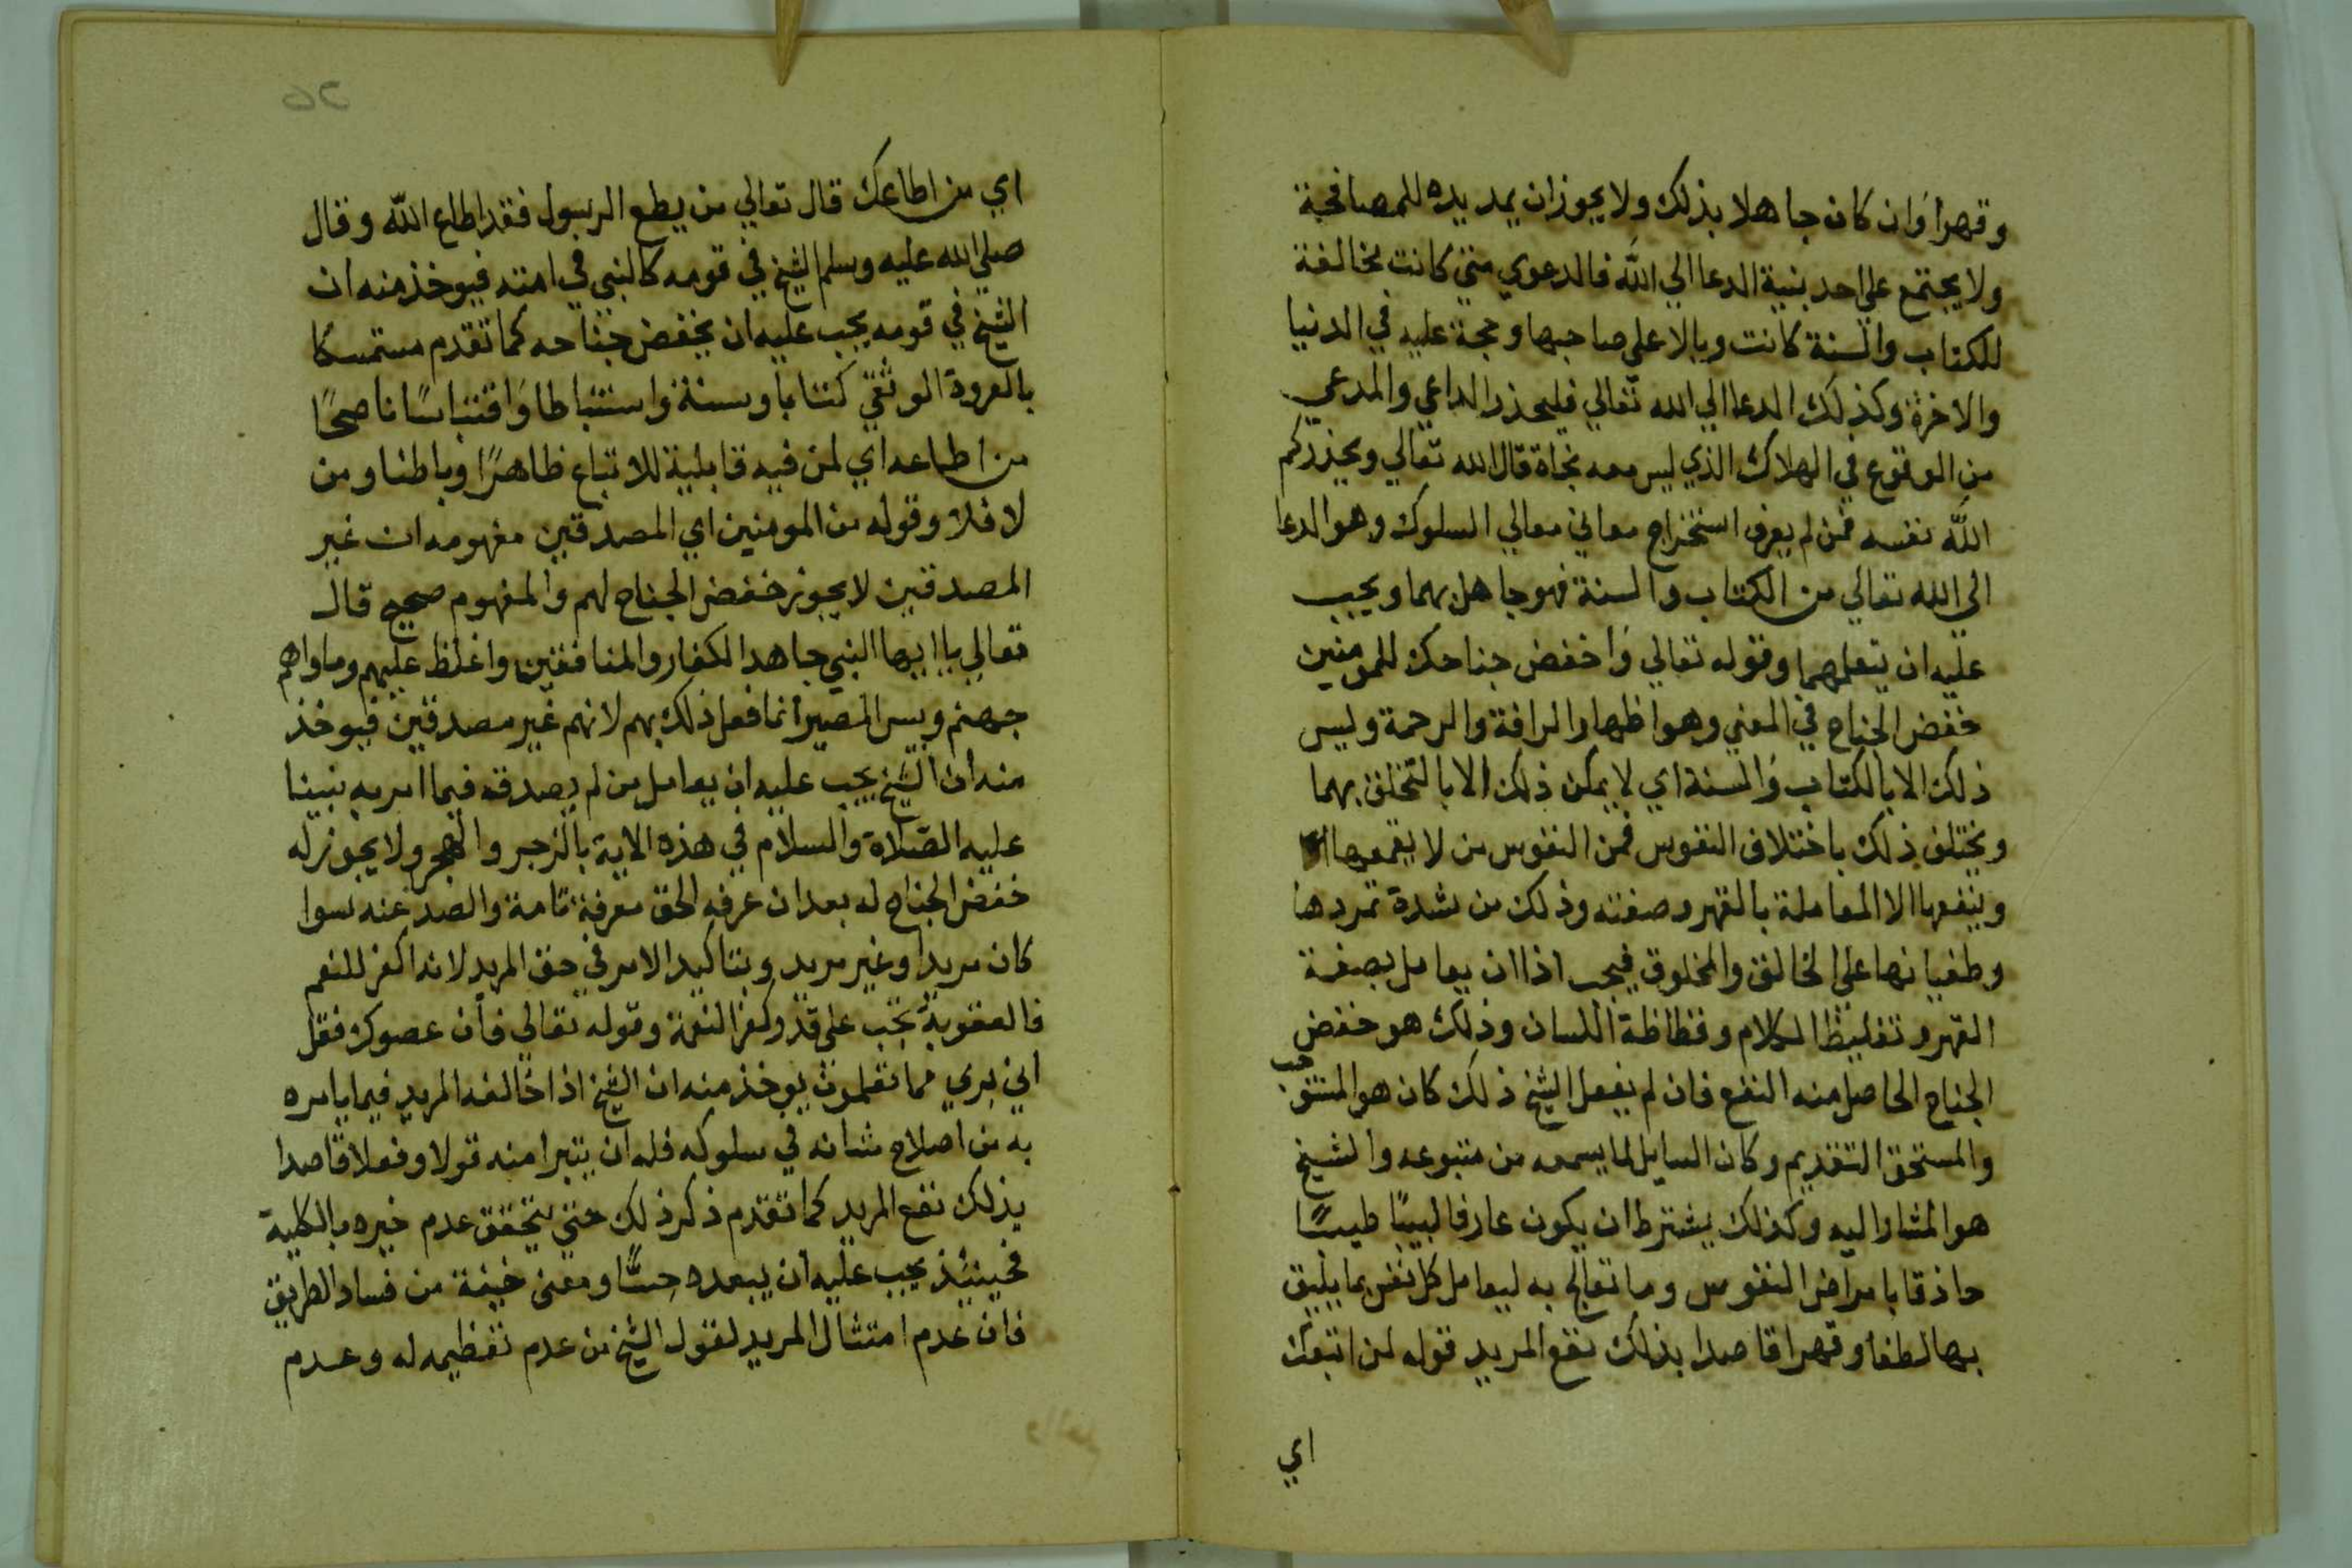 وقهرا وان كان جاهلا بذلك ولا يجوز ان يمد يده للمصافحة
ولا يجتمع علي احد بنية الدعا الي الله فالدعوي متي كانت مخالفة
للكتاب والسنة كانت وبالا علي صاحبها وحجة عليه في الدنيا
والاخرة وكذلك الدعا الي الله تعالي فليحذر الداعي والمدعي
من الوقوع في الهلاك الذي ليس معه نجاة قال الله تعالي ويحذركم
الله نفسه فمن لم يعرف استخراج معاني معالي السلوك وهو الدعا
الي الله تعالي من الكتاب والسنة فهو جاهل بهما ويجب
عليه ان يتعلمهما وقوله تعالي واخفض جناحك للمومنين
خفض الجناح في المعني وهو اظهار الرافة والرحمة وليس
ذلك الا بالكتاب والسنة اي لا يمكن ذلك الا بالتخلق بهما
ويختلف ذلك باختلاف النفوس فمن النفوس من لا يقمعها
وينفعها الا المعاملة بالقهر وصفته وذلك من شدة تمردها
وطغيانها علي الخالق والمخلوق فيجب اذا ان يعامل بصفة
القهر وتغليظ الكلام وفظاظة اللسان وذلك هو خفض
الجناح الحاصل منه النفع فان لم يفعل الشيخ ذلك كان هو
والمستحق التقديم وكان السايل لما يسمعه من متبوعه والشيخ
هو المشار اليه وكذلك يشترط ان يكون عارفا لبيبا طبيبا
حاذقا بامراض النفوس وما تعالج به ليعامل كل نفس بما يليق
بها لطفا وقهرا قاصدا بذلك نفع المريد قوله لمن اتبعك
اي
26
اي من اطاعك قال تعالي من يطع الرسول فقد اطاع الله وقال
صلي الله عليه وسلم الشيخ في قومه كالنبي في امته فيوخذ منه ان
الشيخ في قومه يجب عليه ان يخفض جناحه كما تقدم مستمسكا
بالعروة الوثقي كتابا وسنة واستنباطا واقتباسا ناصحا
من اطاعه اي لمن فيه قابلية للاتباع ظاهرا وباطنا ومن
لا فلا وقوله من المومنين اي المصدقين مفهومه ان غير
المصدقين لا يجوز خفض الجناح لهم والمفهوم صحيح قال
تعالي يا ايها النبي جاهد الكفار والمنافقين واغلظ عليهم وماواهم
جهنم وبيس المصير انما فعل ذلك بهم لانهم غير مصدقين فيوخذ
منه ان الشيخ يجب عليه ان يعامل من لم يصدقه فيما امر به نبينا
عليه الصلاة والسلام في هذه الاية بالزجر والهجر ولا يجوز له
خفض الجناح له بعد ان عرفه الحق معرفة تامة والصد عنه سوا
كان مريدا وغير مريد ويتاكيد الامر في حق المريد لانه اكفر للنعم
فالعقوبة تجب علي قدر وكفر النعمة وقوله تعالي فان عصوك فقل
اني بري مما تعملون يوخذ منه ان الشيخ اذا خالفه المريد فيما يامره
به من اصلاح شانه في سلوكه فله ان يتبرا منه قولا وفعلا قاصدا
بذلك نفع المريد كما تقدم ذكر ذلك حتي يتحقق عدم خيره بالكلية
فحينيئذ يجب عليه ان يبعده حسا ومعني خيفة من فساد الطريق
فان عدم امتثال المريد لقول الشيخ من عدم تعظيمه له وعدم